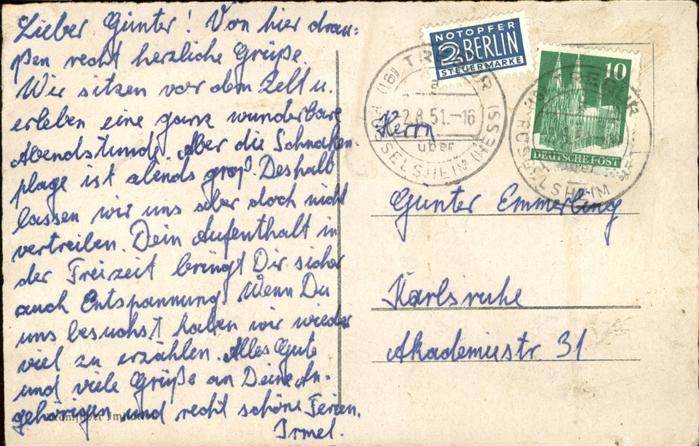 Lieber Günter! Von hier drau-
ßen recht herzliche Grüße.
Wir sitzen vor dem Zelt u.
erleben eine ganz wunderbare
Abendstunde. Aber die Schnaken-
plage ist abends groß. Deshalb
lassen wir uns aber doch nicht
vertreiben. Dein Aufenthalt in
der Freizeit bringt Dir sicher
auch Entspannung. Wenn Du
uns besuchst haben wir wieder
viel zu erzählen. Alles Gute
und viele Grüße an Deine An-
gehörigen und recht schöne Ferien.
Irmel.
NOTOPFER
2 BERLIN
STEUERMARKE
10
DEUTSCHE POST
(16) TREBUR
2.8.51.-16
über
RÜSSELSHEIM (HESS)
TREBUR
RÜSSELSHEIM
Herrn
Günter Emmerling
Karlsruhe
Akademiestr 31